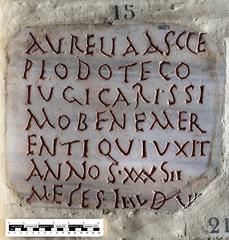 15
AVRELIA ASCLE
PIODOTE CO
IVGI CARISSI
MO BENEMER
ENTI QVI VXIT
ANNOS·XXXSII
MESES IIII D VII
21